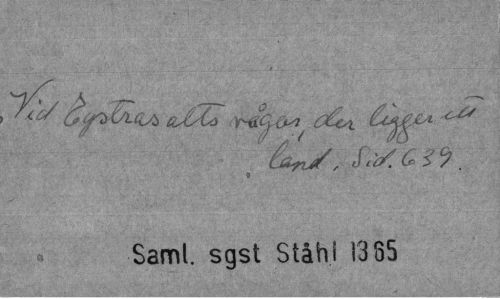 Vid Egstrasalts vågor, der ligger ett
land. Sid. 639.
Saml. sgst Ståhl 1365